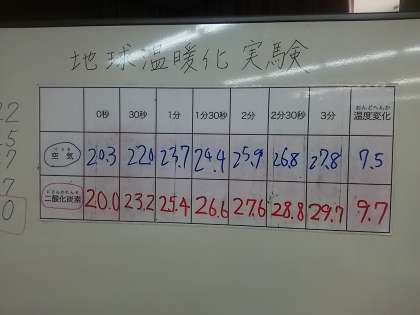 地球温暖化 実験
0秒 30秒 1分 1分30秒 2分 2分30秒 3分 おんどへんか 温度変化
くうき
空気 20.3 22.0 23.7 24.4 25.9 26.8 27.8 7.5
にさんかたんそ
二酸化炭素 20.0 23.2 25.4 26.6 27.6 28.8 29.7 9.7